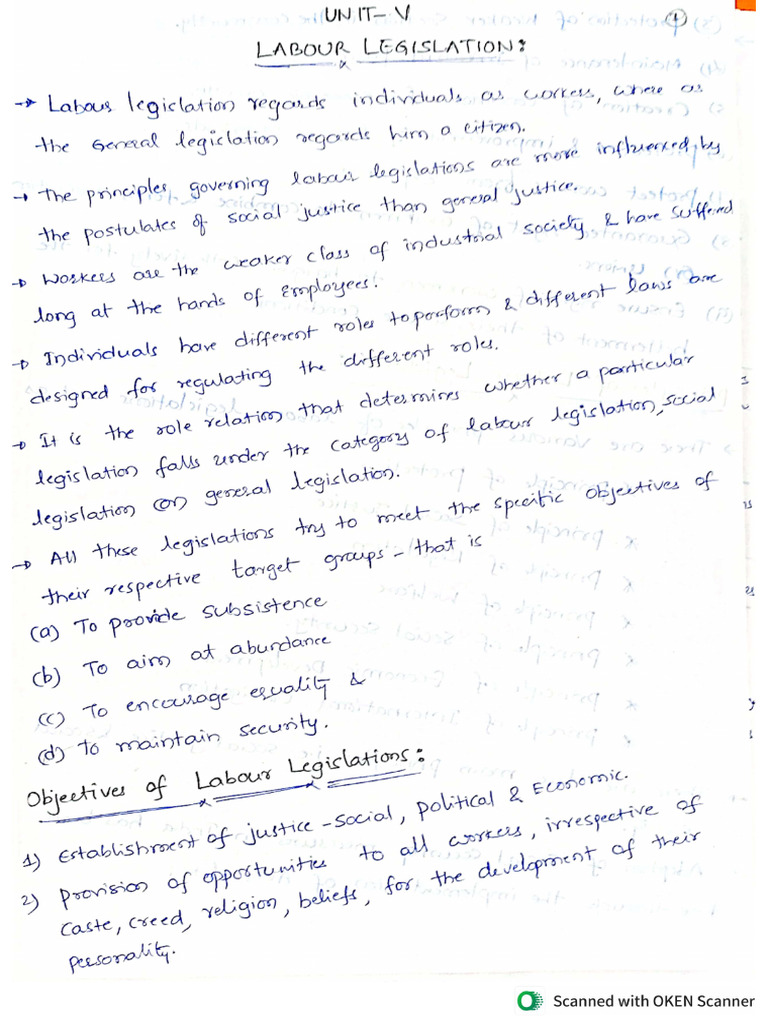 UNIT-V
1
LABOUR LEGISLATION:
→ Labour legislation regards individuals as workers, where as
the General legislation regards him a citizen.
→ The principles governing labour legislations are more influenced by
the postulates of social justice than general justice.
→ Workers are the weaker class of industrial society & have suffered
long at the hands of Employees.
→ Individuals have different roles to perform & different laws are
designed for regulating the different roles.
→ It is the role relation that determines whether a particular
legislation falls under the category of labour legislation, social
legislation (or) general legislation.
→ All these legislations try to meet the specific objectives of
their respective target groups - that is
(a) To provide subsistence
(b) To aim at abundance
(c) To encourage equality &
(d) To maintain security.
Objectives of Labour Legislations:
1) Establishment of justice - social, political & Economic.
2) Provision of opportunities to all workers, irrespective of
caste, creed, religion, beliefs, for the development of their
personality.
Scanned with OKEN Scanner